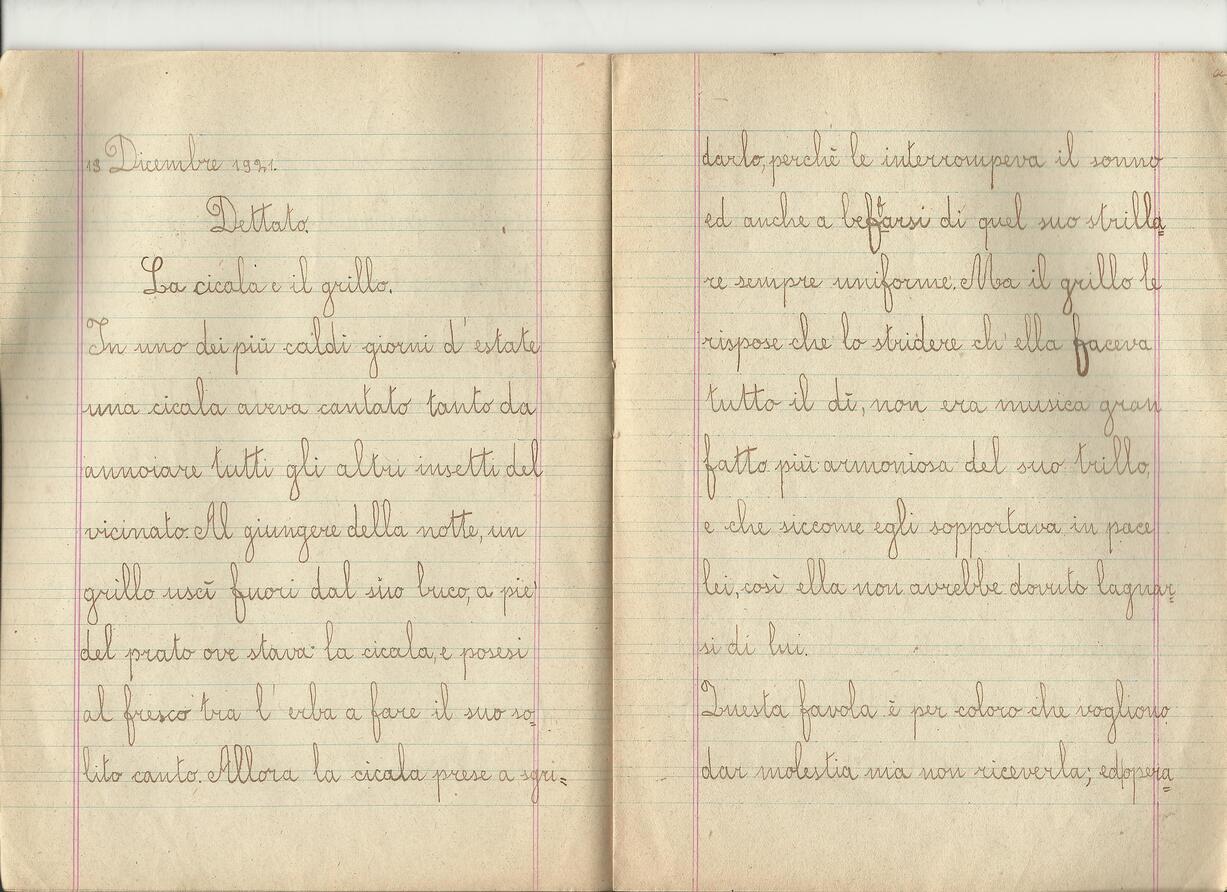 13 Dicembre 1921.
Dettato.
La cicala e il grillo.
In uno dei più caldi giorni d'estate
una cicala aveva cantato tanto da
annoiare tutti gli altri insetti del
vicinato. Al giungere della notte, un
grillo uscì fuori dal suo buco, a pie'
del prato ove stava la cicala, e posesi
al fresco tra l'erba a fare il suo so=
lito canto. Allora la cicala prese a sgri=
darlo, perchè le interrompeva il sonno
ed anche a beffarsi di quel suo strilla=
re sempre uniforme. Ma il grillo le
rispose che lo stridere ch'ella faceva
tutto il dì, non era musica gran
fatto più armoniosa del suo trillo,
e che siccome egli sopportava in pace
lei, così ella non avrebbe dovuto lagnar=
si di lui.
Questa favola è per coloro che vogliono
dar molestia ma non riceverla; ed opera=